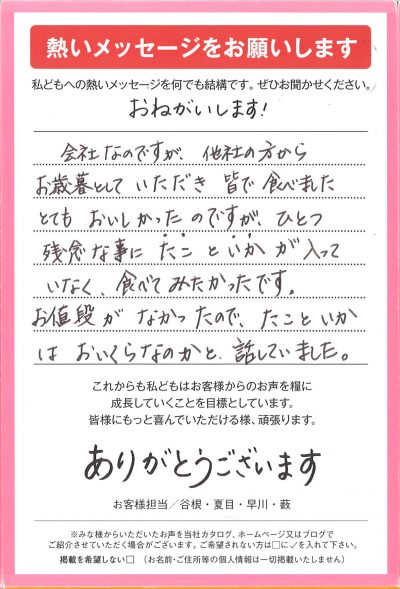 熱いメッセージをお願いします
私どもへの熱いメッセージを何でも結構です。ぜひお聞かせください。
おねがいします!
会社なのですが、他社の方から
お歳暮として いただき 皆で 食べました
とても おいしかった のですが、ひとつ
残念な事に たこ と いか が 入って
いなく、食べて みたかったです。
お値段が なかったので、たこといか
は おいくらなのかと、話していました。
これからも私どもはお客様からのお声を糧に
成長していくことを目標としています。
皆様にもっと喜んでいただける様、頑張ります。
ありがとうございます
お客様担当／谷根・夏目・早川・薮
※みな様からいただいたお声を当社カタログ、ホームページ又はブログで
ご紹介させていただく場合がございます。ご希望されない方は□に✓を入れて下さい。
掲載を希望しない□ （お名前・ご住所等の個人情報は一切掲載いたしません）